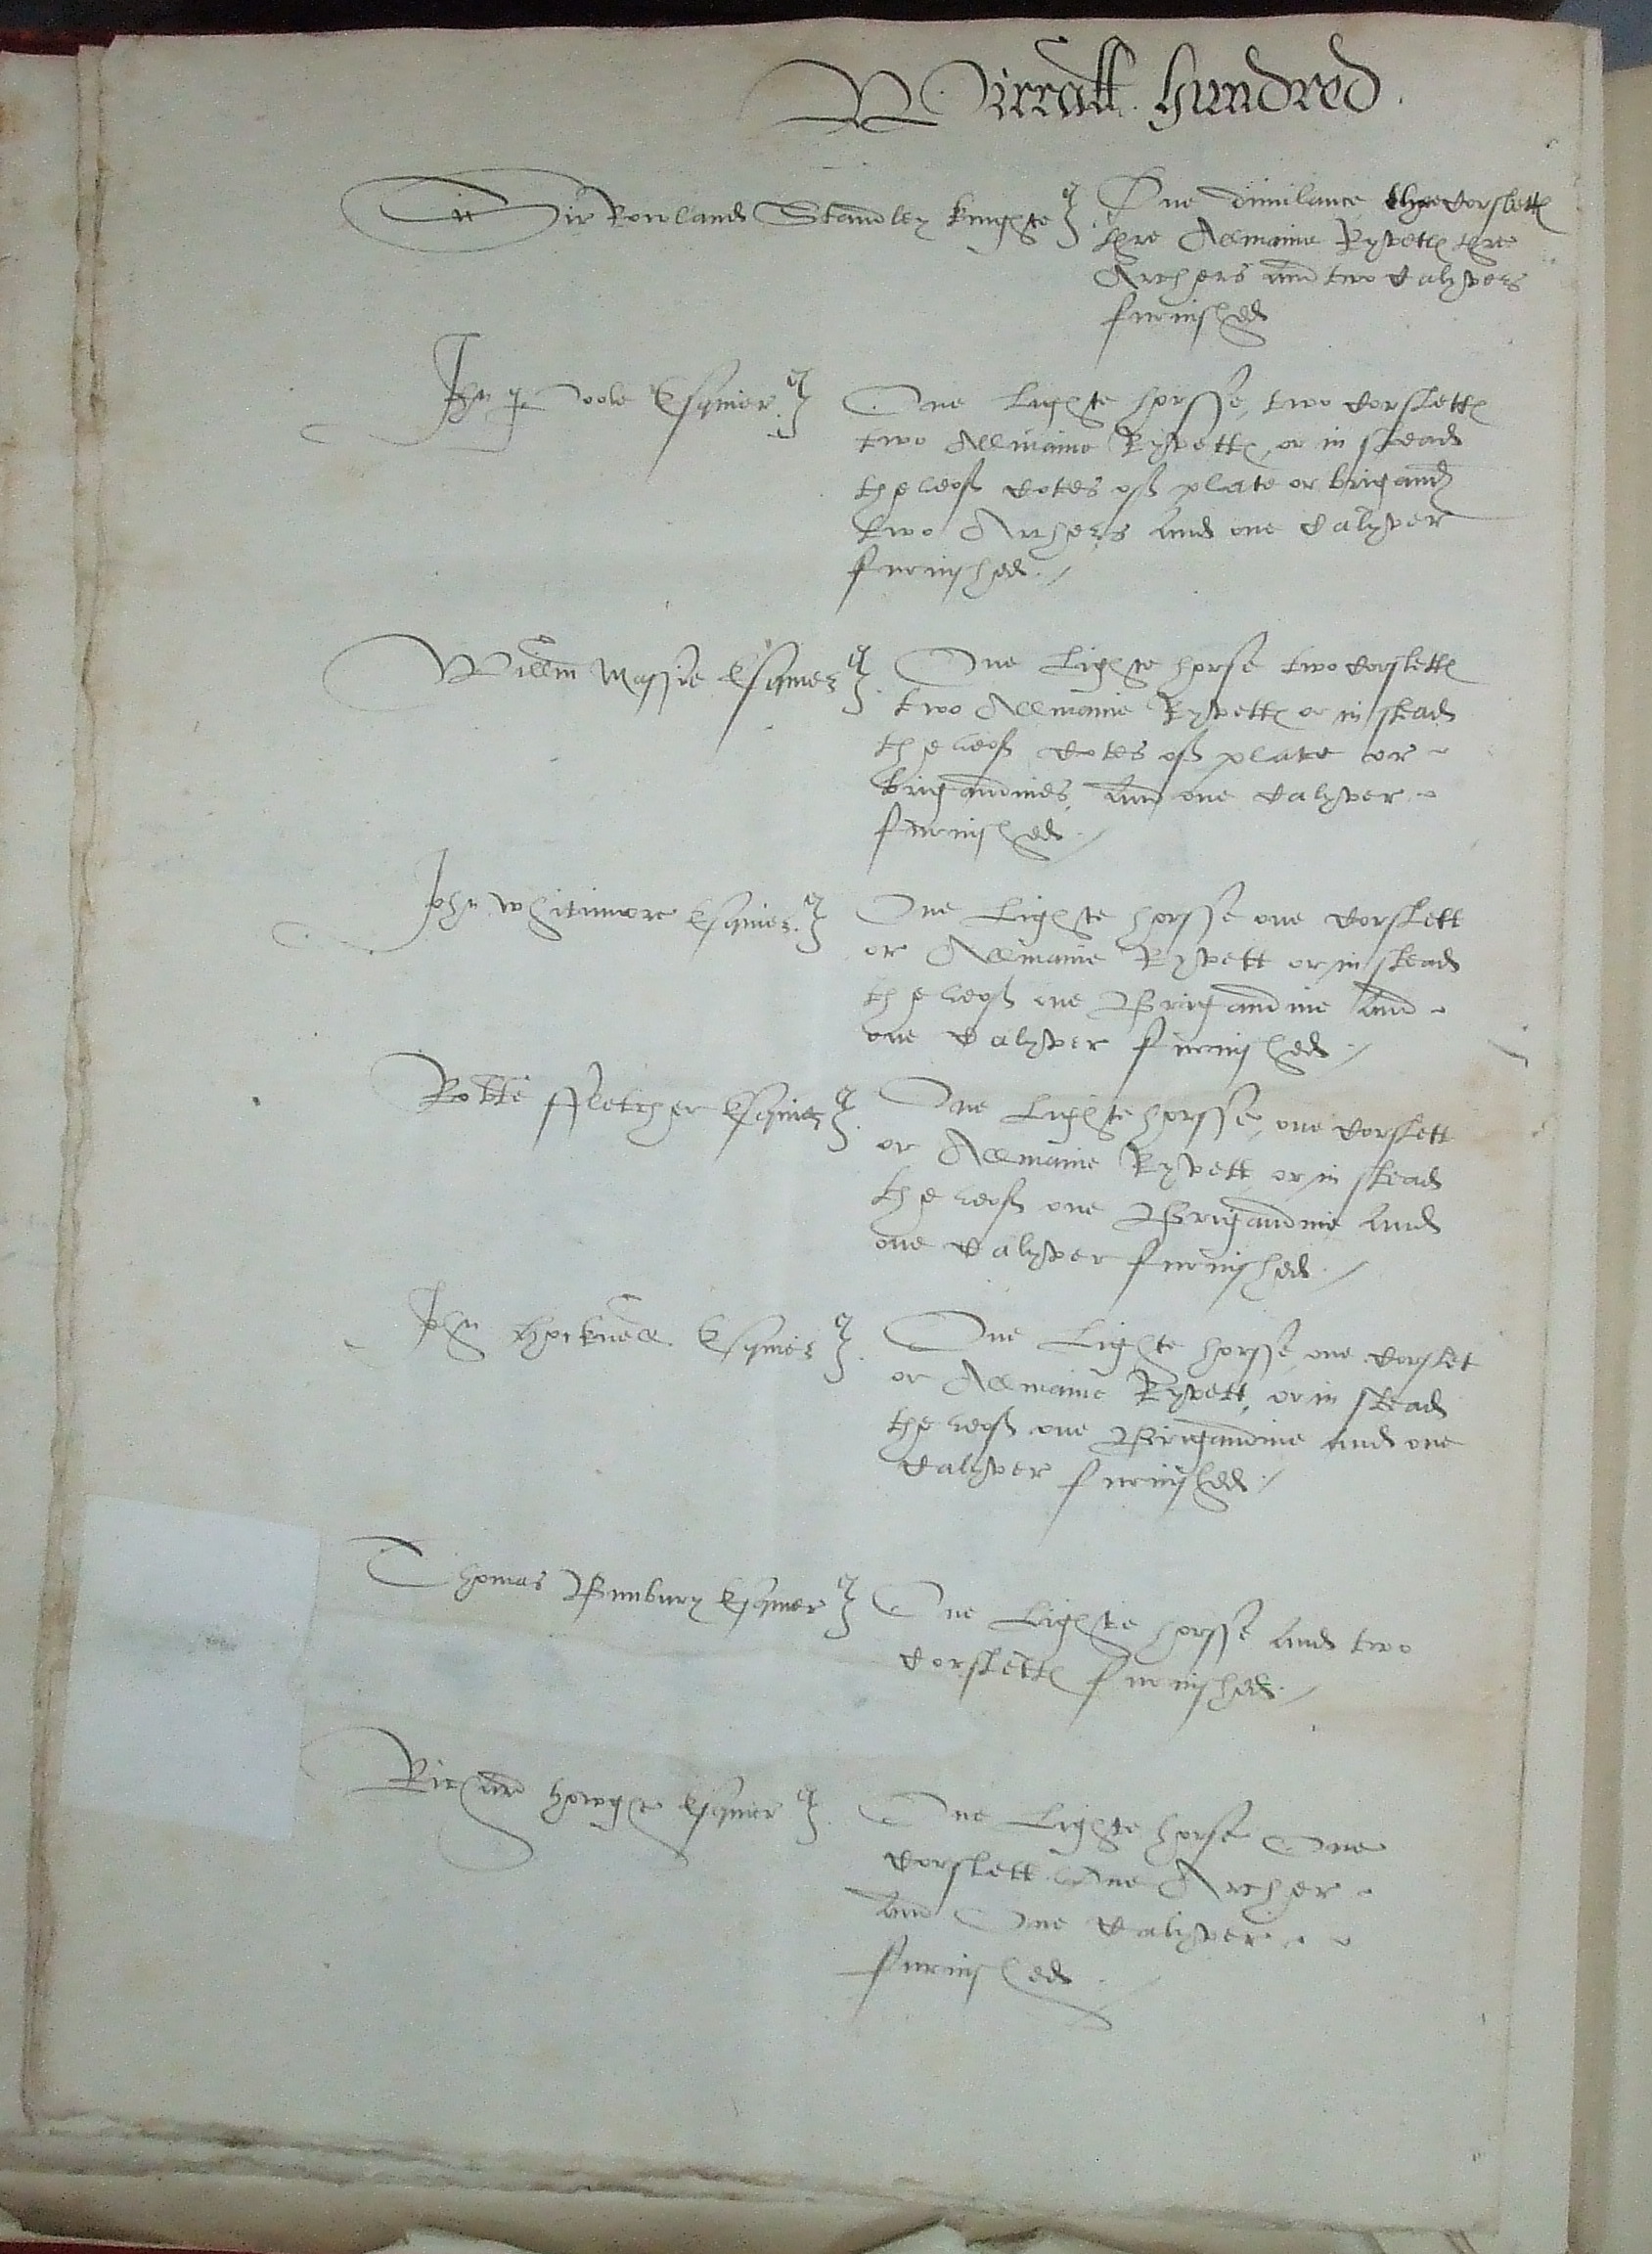 Wirrall hundred
Sir Rowland Standley knighte
One dimilance thre Corslett
thre Allmaine Ryvett thre
Archers and two Calyvers
furnished
John Poole Esquier
One Lighte horsse, two Corslett
two Allmaine Ryvett, or in stead
therof Cotes of plate or brigand
two Archers and one Calyver
furnished
Willm Massie Esquier
One Lighte horse two Corslett
two Allmaine Ryvett or in stead
therof Cotes of plate or
brigandines, and one Calyver
furnished
John Whitimore Esquier
One Lighte horsse one Corslett
or Allmaine Ryvett or in stead
therof one Brigandine and
one Calyver furnished
Robte ffletcher Esquier
One Lighte horsse, one Corslett
or Allmaine Ryvett or in stead
therof one Brigandine and
one Calyver furnished
John Hocknell Esquier
One Lighte horsse one Corslet
or Allmaine Ryvett, or in stead
therof one Brigandine and one
Calyver furnished
Thomas Bunbury Esquier
One Lighte horsse and two
Corslett furnished
Richard Howghe Esquier
One Lighte horse One
Corslett One Archer
and One Calyver
furnished